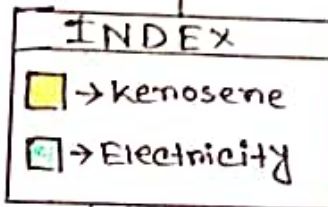 INDEX
→ Kerosene
→ Electricity